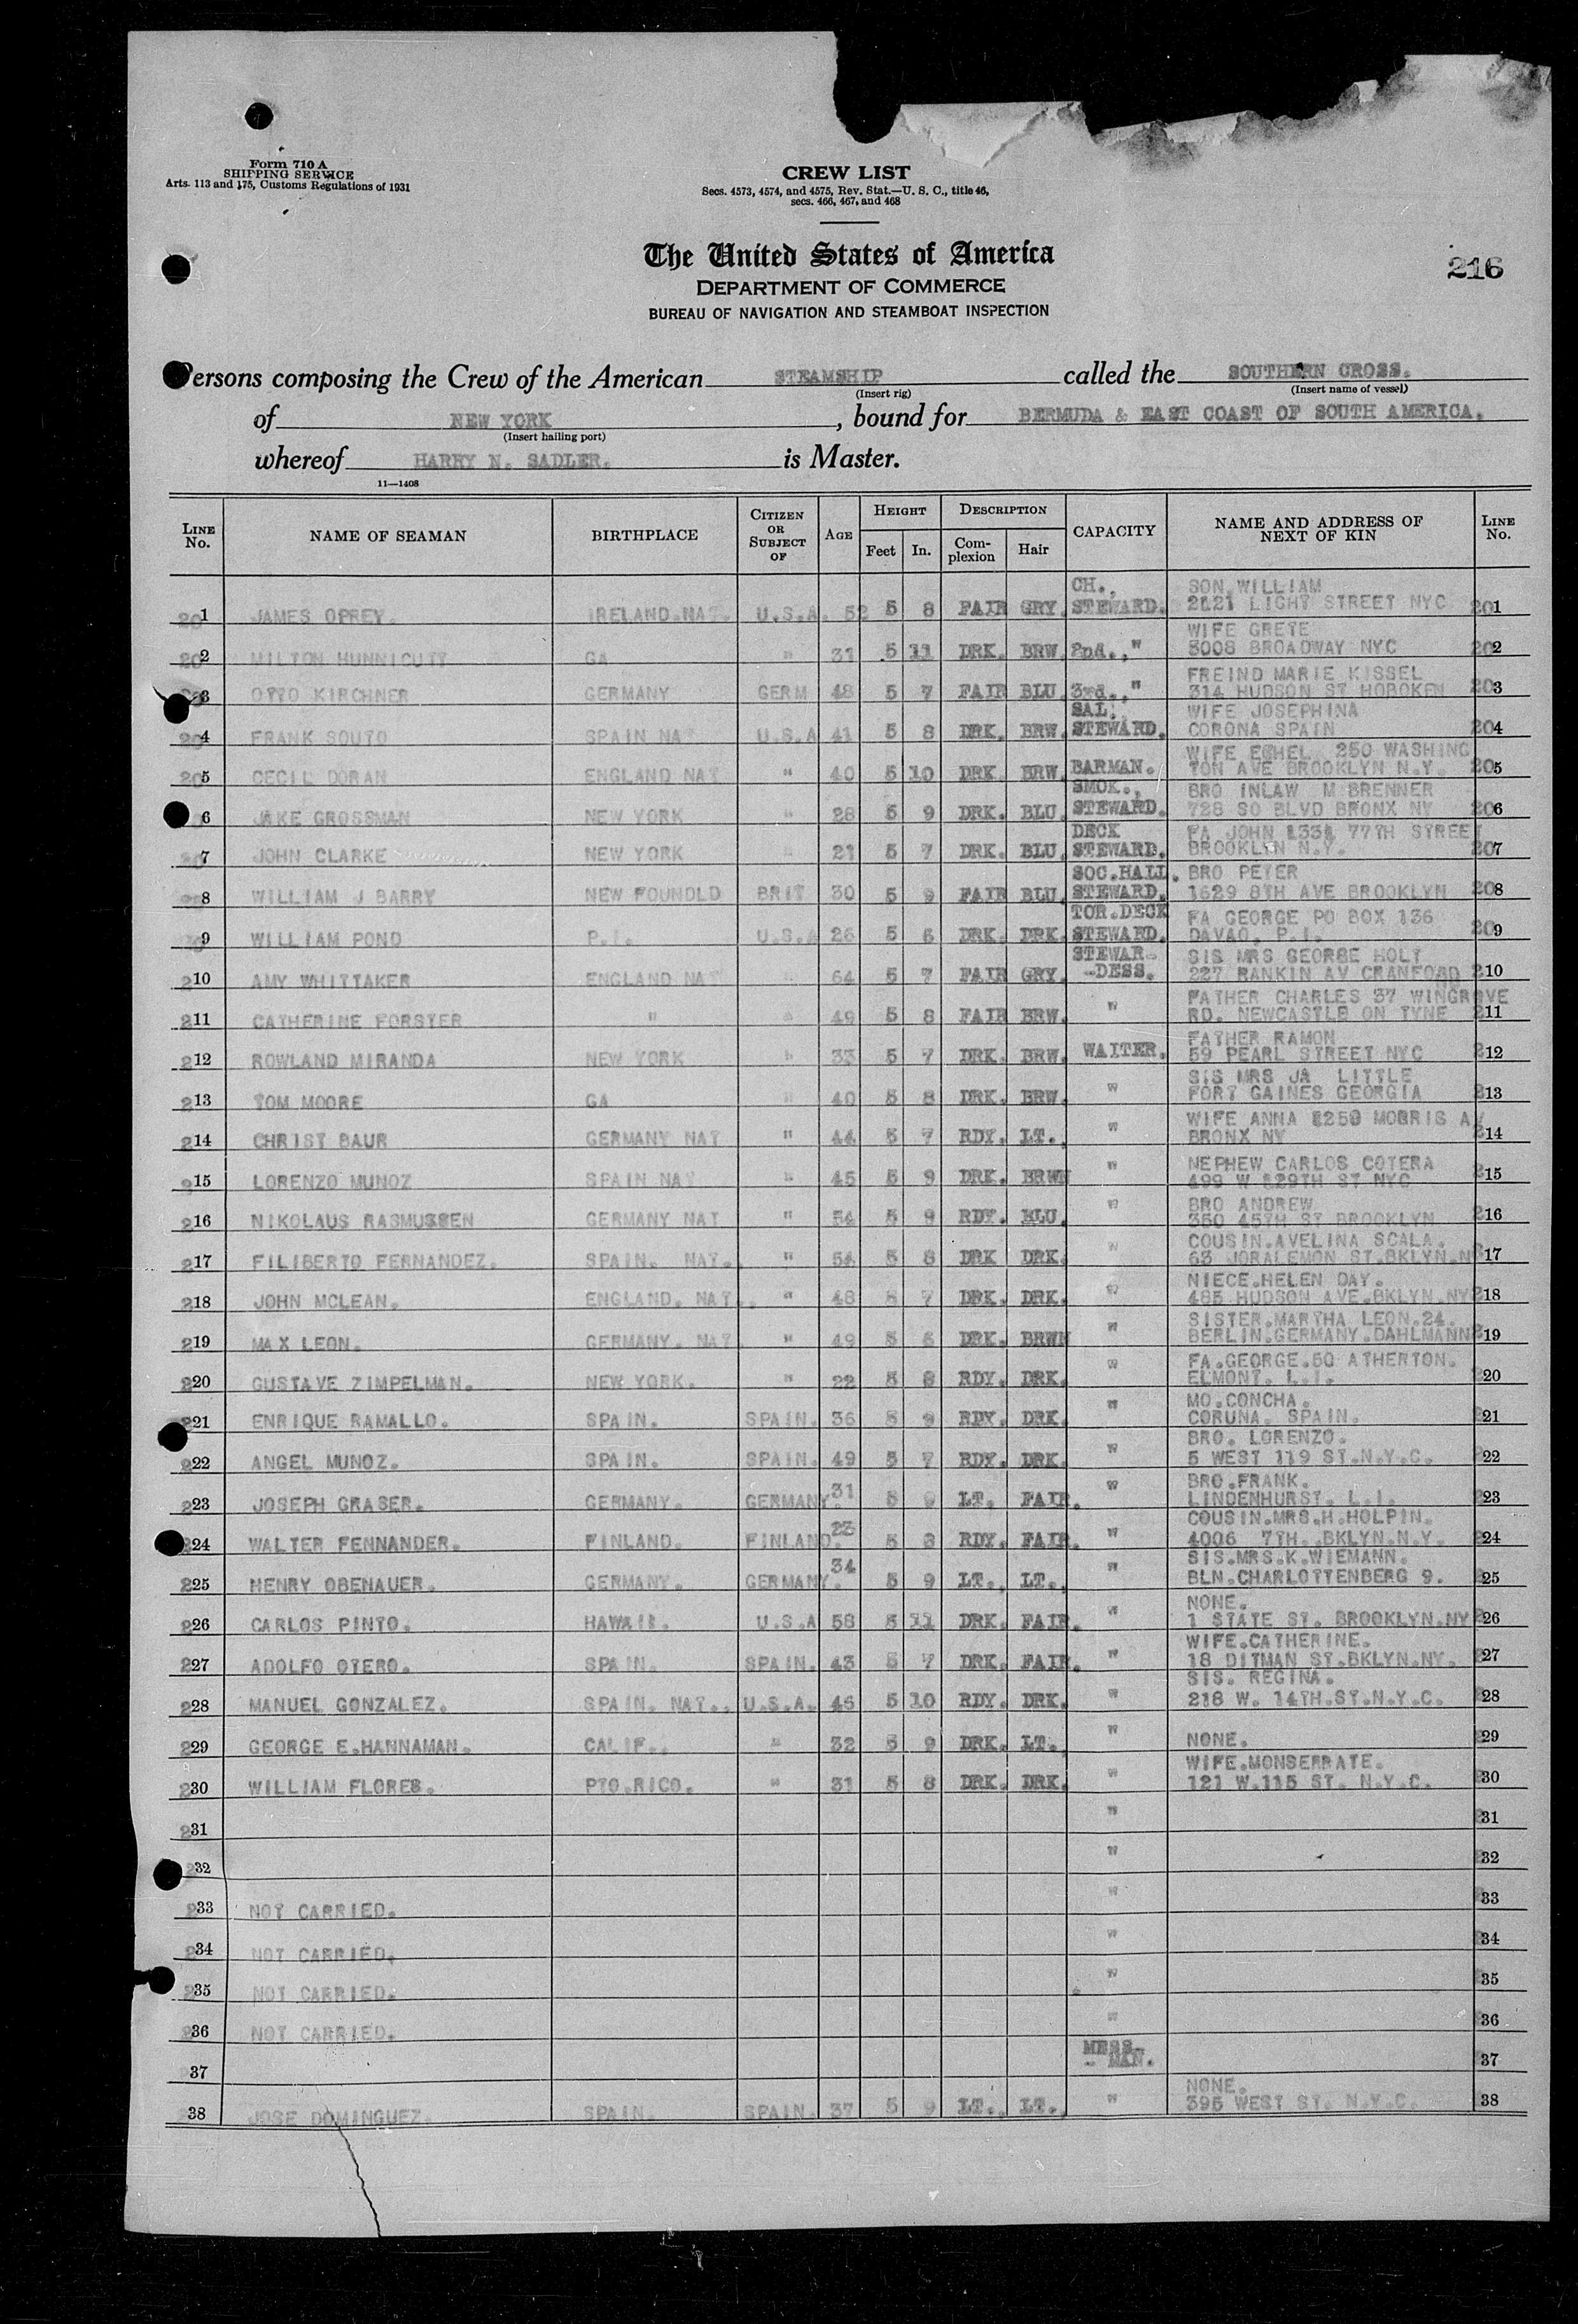 Form 710 A
SHIPPING SERVICE
Arts. 113 and 175, Customs Regulations of 1931
CREW LIST
Secs. 4573, 4574, and 4575, Rev. Stat.—U. S. C., title 46,
secs. 466, 467, and 468
The United States of America
DEPARTMENT OF COMMERCE
BUREAU OF NAVIGATION AND STEAMBOAT INSPECTION
216
Persons composing the Crew of the American STEAMSHIP called the SOUTHERN CROSS.
(Insert rig) (Insert name of vessel)
of NEW YORK, bound for BERMUDA & EAST COAST OF SOUTH AMERICA.
(Insert hailing port)
whereof HARRY N. SADLER. is Master.
11—1408
LINE No. NAME OF SEAMAN BIRTHPLACE CITIZEN OR SUBJECT OF AGE HEIGHT Feet In. DESCRIPTION Complexion Hair CAPACITY NAME AND ADDRESS OF NEXT OF KIN LINE No.
201 JAMES OPREY. IRELAND.NAT. U.S.A. 52 5 8 FAIR GRY. CH., STEWARD. SON WILLIAM 2121 LIGHT STREET NYC 201
202 MILTON HUNNICUTT GA " 31 5 11 DRK. BRW. 2nd.," WIFE GRETE 3008 BROADWAY NYC 202
203 OTTO KIRCHNER GERMANY GERM 48 5 7 FAIR BLU. 3rd.," FREIND MARIE KISSEL 314 HUDSON ST HOBOKEN 203
204 FRANK SOUTO SPAIN NAT U.S.A 41 5 8 DRK. BRW. SAL. STEWARD. WIFE JOSEPHINA CORONA SPAIN 204
205 CECIL DORAN ENGLAND NAT " 40 5 10 DRK. BRW. BARMAN. WIFE 250 WASHING TON AVE BROOKLYN N.Y. 205
206 JAKE GROSSMAN NEW YORK " 28 5 9 DRK. BLU. SMOK., STEWARD. BRO INLAW M BRENNER 728 SO BLVD BRONX NY 206
207 JOHN CLARKE NEW YORK " 21 5 7 DRK. BLU. DECK STEWARD. FA JOHN 77TH STREET BROOKLYN N.Y. 207
208 WILLIAM J BARRY NEW FOUNDLD BRIT 30 5 9 FAIR BLU. SOC.HALL. STEWARD. BRO PETER 1629 8TH AVE BROOKLYN 208
209 WILLIAM POND P.I. U.S.A 26 5 6 DRK. DRK. TOR.DECK STEWARD. FA GEORGE PO BOX 136 DAVAO, P.I. 209
210 AMY WHITTAKER ENGLAND NAT " 64 5 7 FAIR GRY. STEWAR--DESS. SIS MRS GEORGE HOLT 227 RANKIN AV CRANFORD 210
211 CATHERINE FORSTER " " 49 5 8 FAIR BRW. " FATHER CHARLES 37 WINGROVE RD. NEWCASTLE ON TYNE 211
212 ROWLAND MIRANDA NEW YORK " 33 5 7 DRK. BRW. WAITER. FATHER RAMON 59 PEARL STREET NYC 212
213 TOM MOORE GA " 40 5 8 DRK. BRW. " SIS MRS JA LITTLE FORT GAINES GEORGIA 213
214 CHRIST BAUR GERMANY NAT " 44 5 7 RDY. LT. " WIFE ANNA MORRIS AV BRONX NY 214
215 LORENZO MUNOZ SPAIN NAT " 45 5 9 DRK. BRWN " NEPHEW CARLOS COTERA 499 W 129TH ST NYC 215
216 NIKOLAUS RASMUSSEN GERMANY NAT " 54 5 9 RDY. BLU. " BRO ANDREW 350 45TH ST BROOKLYN 216
217 FILIBERTO FERNANDEZ. SPAIN. NAT. " 54 5 8 DRK DRK. " COUSIN.AVELINA SCALA. 63 JORALEMON ST.BKLYN.N 217
218 JOHN MCLEAN. ENGLAND. NAT. " 48 5 7 DRK. DRK. " NIECE.HELEN DAY. 485 HUDSON AVE.BKLYN.NY 218
219 MAX LEON. GERMANY. NAT. " 49 5 6 DRK. BRWN " SISTER.MARTHA LEON.24. BERLIN.GERMANY.DAHLMANN 219
220 GUSTAVE ZIMPELMAN. NEW YORK. " 22 5 8 RDY. DRK. " FA.GEORGE.50 ATHERTON. ELMONT. L.I. 220
221 ENRIQUE RAMALLO. SPAIN. SPAIN. 36 5 9 RDY. DRK. " MO.CONCHA. CORUNA. SPAIN. 221
222 ANGEL MUNOZ. SPAIN. SPAIN. 49 5 7 RDY. DRK. " BRO. LORENZO. 5 WEST 119 ST.N.Y.C. 222
223 JOSEPH GRASER. GERMANY. GERMANY. 31 5 9 LT. FAIR. " BRO.FRANK. LINDENHURST. L.I. 223
224 WALTER FENNANDER. FINLAND. FINLAND. 23 5 8 RDY. FAIR. " COUSIN.MRS.H.HOLPIN. 4006 7TH. .BKLYN.N.Y. 224
225 HENRY OBENAUER. GERMANY. GERMANY. 34 5 9 LT. LT. " SIS.MRS.K.WIEMANN. BLN.CHARLOTTENBERG 9. 225
226 CARLOS PINTO. HAWAII. U.S.A 58 5 11 DRK. FAIR. " NONE. 1 STATE ST. BROOKLYN.NY 226
227 ADOLFO OTERO. SPAIN. SPAIN. 43 5 7 DRK. FAIR. " WIFE.CATHERINE. 18 DITMAN ST.BKLYN.NY. 227
228 MANUEL GONZALEZ. SPAIN. NAT.. U.S.A. 46 5 10 RDY. DRK. " SIS. REGINA. 218 W. 14TH.ST.N.Y.C. 228
229 GEORGE E.HANNAMAN. CALIF.. " 32 5 9 DRK. LT. " NONE. 229
230 WILLIAM FLORES. PTO.RICO. " 31 5 8 DRK. DRK. " WIFE.MONSERRATE. 121 W.115 ST. N.Y.C. 230
231 " 231
232 " 232
233 NOT CARRIED. " 233
234 NOT CARRIED. " 234
235 NOT CARRIED. " 235
236 NOT CARRIED. " 236
37 MESS-- MAN. 37
38 JOSE DOMINGUEZ. SPAIN. SPAIN. 37 5 9 LT. LT. " NONE. 395 WEST ST. N.Y.C. 38